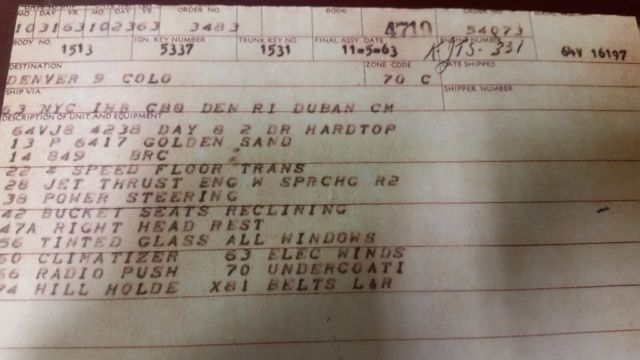 MO DAY YR. MO DAY YR. ORDER NO. BOOK
103163102363 3483 4710 54073
BODY NO. IGN. KEY NUMBER TRUNK KEY NO. FINAL ASSY. DATE
1513 5337 1531 11-5-63 64V 16197
DESTINATION ZONE CODE DATE SHIPPED
DENVER 9 COLO 70 C
SHIP VIA SHIPPER NUMBER
63 NYC IHB CBQ DEN RI DUBAN CM
DESCRIPTION OF UNIT AND EQUIPMENT
64VJ8 4238 DAY 8 2 DR HARDTOP
13 P 6417 GOLDEN SAND
14 849 BRC
22 4 SPEED FLOOR TRANS
28 JET THRUST ENG W SPRCHG R2
38 POWER STEERING
42 BUCKET SEATS RECLINING
47A RIGHT HEAD REST
56 TINTED GLASS ALL WINDOWS
60 CLIMATIZER 63 ELEC WINDS
66 RADIO PUSH 70 UNDERCOATI
74 HILL HOLDE X81 BELTS L&R